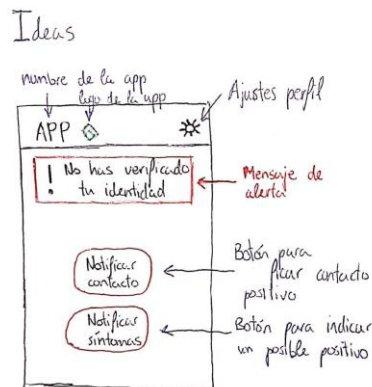 Ideas
nombre de la app
logo de la app
Ajustes perfil
APP
! No has verificado
tu identidad
Mensaje de
alerta
Notificar
contacto
Botón para
ficar contacto
positivo
Notificar
síntomas
Botón para indicar
un posible positivo